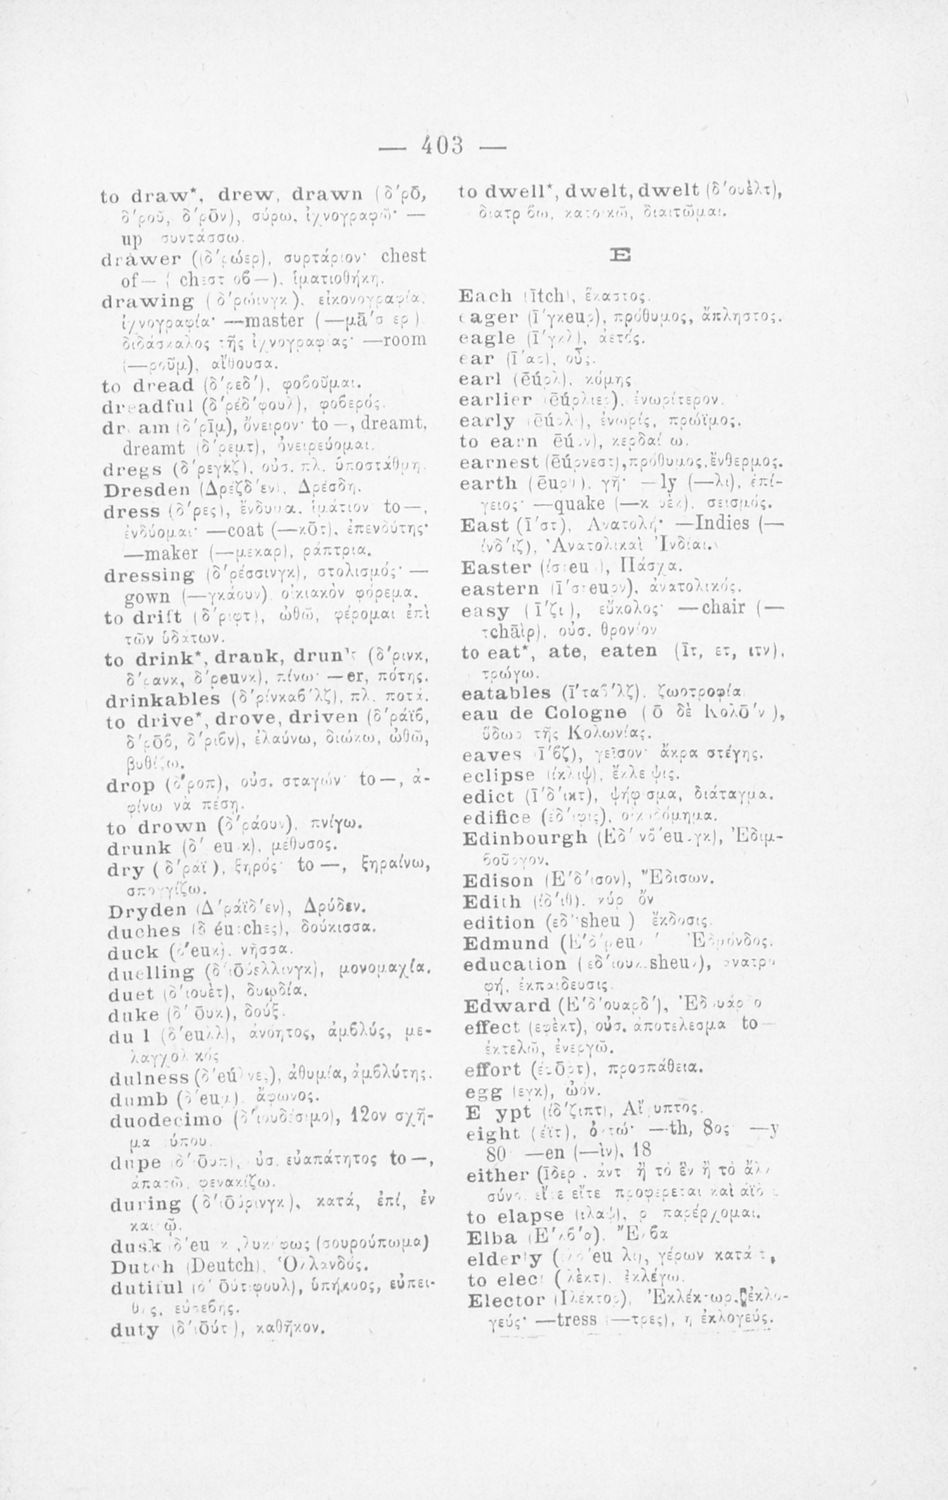 — 403 —
to draw*, drew, drawn (δ'ρō,
δ'ροῦ, δ'ρōν), σύρω, ἰχνογραφῶ· —
up συντάσσω.
dràwer ((δ'ρώερ), συρτάριον· chest
of— ( chεστ οϐ—), ἱματιοθήκη.
drawing (δ'ρώινγκ), εἰκονογραφία,
ἰχνογραφία· —master (—μā'σ ερ)
διδάσκαλος τῆς ἰχνογραφίας· —room
(—ροῦμ), αἴθουσα.
to dread (δ'ρεδ'), φοϐοῦμαι.
dreadful (δ'ρέδ'φουλ), φοϐερός.
dr am (δ'ρῑμ), ὄνειρον· to —, dreamt,
dreamt (δ'ρεμτ), ὀνειρεύομαι.
dregs (δ'ρεγκζ), οὐσ. πλ. ὑποστάθμη.
Dresden (Δρέζδ'εν), Δρέσδη.
dress (δ'ρες), ἔνδυμα, ἱμάτιον to—,
ἐνδύομαι· —coat (—κōτ), ἐπενδύτης·
—maker (—μεκαρ), ράπτρια.
dressing (δ'ρέσσινγκ), στολισμός· —
gown (—γκάουν) οἰκιακὸν φόρεμα.
to drift (δ'ριφτ), ὠθῶ, φέρομαι ἐπὶ
τῶν ὑδάτων.
to drink*, drank, drunk (δ'ρινκ,
δ'ρανκ, δ'ρeuνκ), πίνω· —er, πότης.
drinkables (δ'ρίνκαϐ'λζ), πλ. ποτά.
to drive*, drove, driven (δ'ράϊϐ,
δ'ρōϐ, δ'ριϐν), ἐλαύνω, διώκω, ὠθῶ,
βυθίζω.
drop (δ'ροπ), οὐσ. σταγών· to—, ἀ-
φίνω νὰ πέσῃ.
to drown (δ'ράουν), πνίγω.
drunk (δ' eu κ), μέθυσος.
dry (δ'ράϊ), ξηρός· to —, ξηραίνω,
σπογγίζω.
Dryden (Δ'ράϊδ'εν), Δρύδεν.
duches (δ éuτches), δούκισσα.
duck (δ'euκ), νῆσσα.
duelling (δ'ιōύελλινγκ), μονομαχία.
duet (δ'ιουέτ), δυῳδία.
duke (δ' ōυκ), δούξ.
du l (δ'euλλ), ἀνόητος, ἀμϐλύς, με-
λαγχολ κός
dulness (δ'eύλνες), ἀθυμία, ἀμϐλύτης.
dumb (δ'euμ) ἄφωνος.
duodecimo (δ'ιουδέσιμο), 12ον σχῆ-
μα τύπου
dupe (δ'ιōυπ), οὐσ. εὐαπάτητος to —,
ἀπατῶ, φενακίζω.
during (δ'ιōύρινγκ), κατά, ἐπί, ἐν
καιρῷ.
dusk (δ'eu κ), λυκόφως (σουρούπωμα)
Dutch (Deutch), Ὁλλανδός.
dutiful (δ' ōύτιφουλ), ὑπήκοος, εὐπει-
θής, εὐσεϐής.
duty (δ'ιōύτ), καθῆκον.
to dwell*, dwelt, dwelt (δ'ουὲλτ),
διατρίϐω, κατοικῶ, διαιτῶμαι.
E
Each (ῑtch), ἕκαστος.
eager (ῑ'γκeuρ), πρόθυμος, ἄπληστος.
eagle (ῑ'γκλ), ἀετός.
ear (ῑ'αρ), οὖς.
earl (ēύρλ), κόμης
earlier (ēύρλιερ), ἐνωρίτερον.
early (ēύρλι), ἐνωρίς, πρώϊμος.
to earn (ēύρν), κερδαίνω.
earnest (ēύρνεστ), πρόθυμος, ἔνθερμος.
earth (ēuρθ), γῆ· —ly (—λι), ἐπί-
γειος· —quake (—κουέκ), σεισμός.
East (ῑ'στ), Ἀνατολή· —Indies (—
ίνδ'ιζ), Ἀνατολικαὶ Ἰνδίαι.
Easter (ίστeu), Πάσχα.
eastern (ῑ'στeuρν), ἀνατολικός.
easy (ῑ'ζι), εὔκολος· —chair (—
τchāìρ), οὐσ. θρονίον
to eat*, ate, eaten (ῑτ, ετ, ιτν),
τρώγω.
eatables (ῑ'ταϐ'λζ), ζωοτροφία
eau de Cologne (ō δὲ Κολō'ν),
ὕδωρ τῆς Κολωνίας.
eaves (ῑ'ϐζ), γεῖσον· ἄκρα στέγης.
eclipse (ίκλιψ), ἔκλειψις.
edict (ῑ'δ'ικτ), ψήφισμα, διάταγμα.
edifice (ἐδ'ιφις), οἰκοδόμημα.
Edinbourgh (Ἐδ' νϐ'eu γκ), Ἐδιμ-
ϐοῦργον.
Edison (Ε'δ'ισον), Ἔδισων.
Edith (ίδ'ιθ), κύρ ὄν
edition (εδ'ί sheu ) ἔκδοσις.
Edmund (Ε'δ'μeu ' Ἐδμόνδος.
education (εδ'ιουκ sheu ), ἀνατρο
φή, ἐκπαίδευσις.
Edward (Ε'δ'ουαρδ'), Ἐδουάρδο
effect (εφέκτ), οὐσ. ἀποτέλεσμα to —
ἐκτελῶ, ἐνεργῶ.
effort (έφōρτ), προσπάθεια.
egg (εγκ), ὠόν.
E ypt (ίδ'ζιπτ), Αἴγυπτος.
eight (έϊτ), ὀκτώ· —th, 8ος —y
80 —en (—ιν), 18
either (ῑδερ , ἀντ ἢ τὸ ἓν ἢ τὸ ἄλλ
σύνδ. εἴτε εἴτε προφέρεται καὶ ἀϊδ
to elapse (ιλαψ), ρ παρέρχομαι.
Elba (Ε'λϐ'ο), Ἔλϐα
elder'y ( 'eu λι, γέρων κατά τι,
to elec (ιλέκτ), ἐκλέγω.
Elector (Ιλέκτορ), Ἐκλέκτωρ, ἐκλο-
γεύς· —tress (—τρες), ἡ ἐκλογεύς.